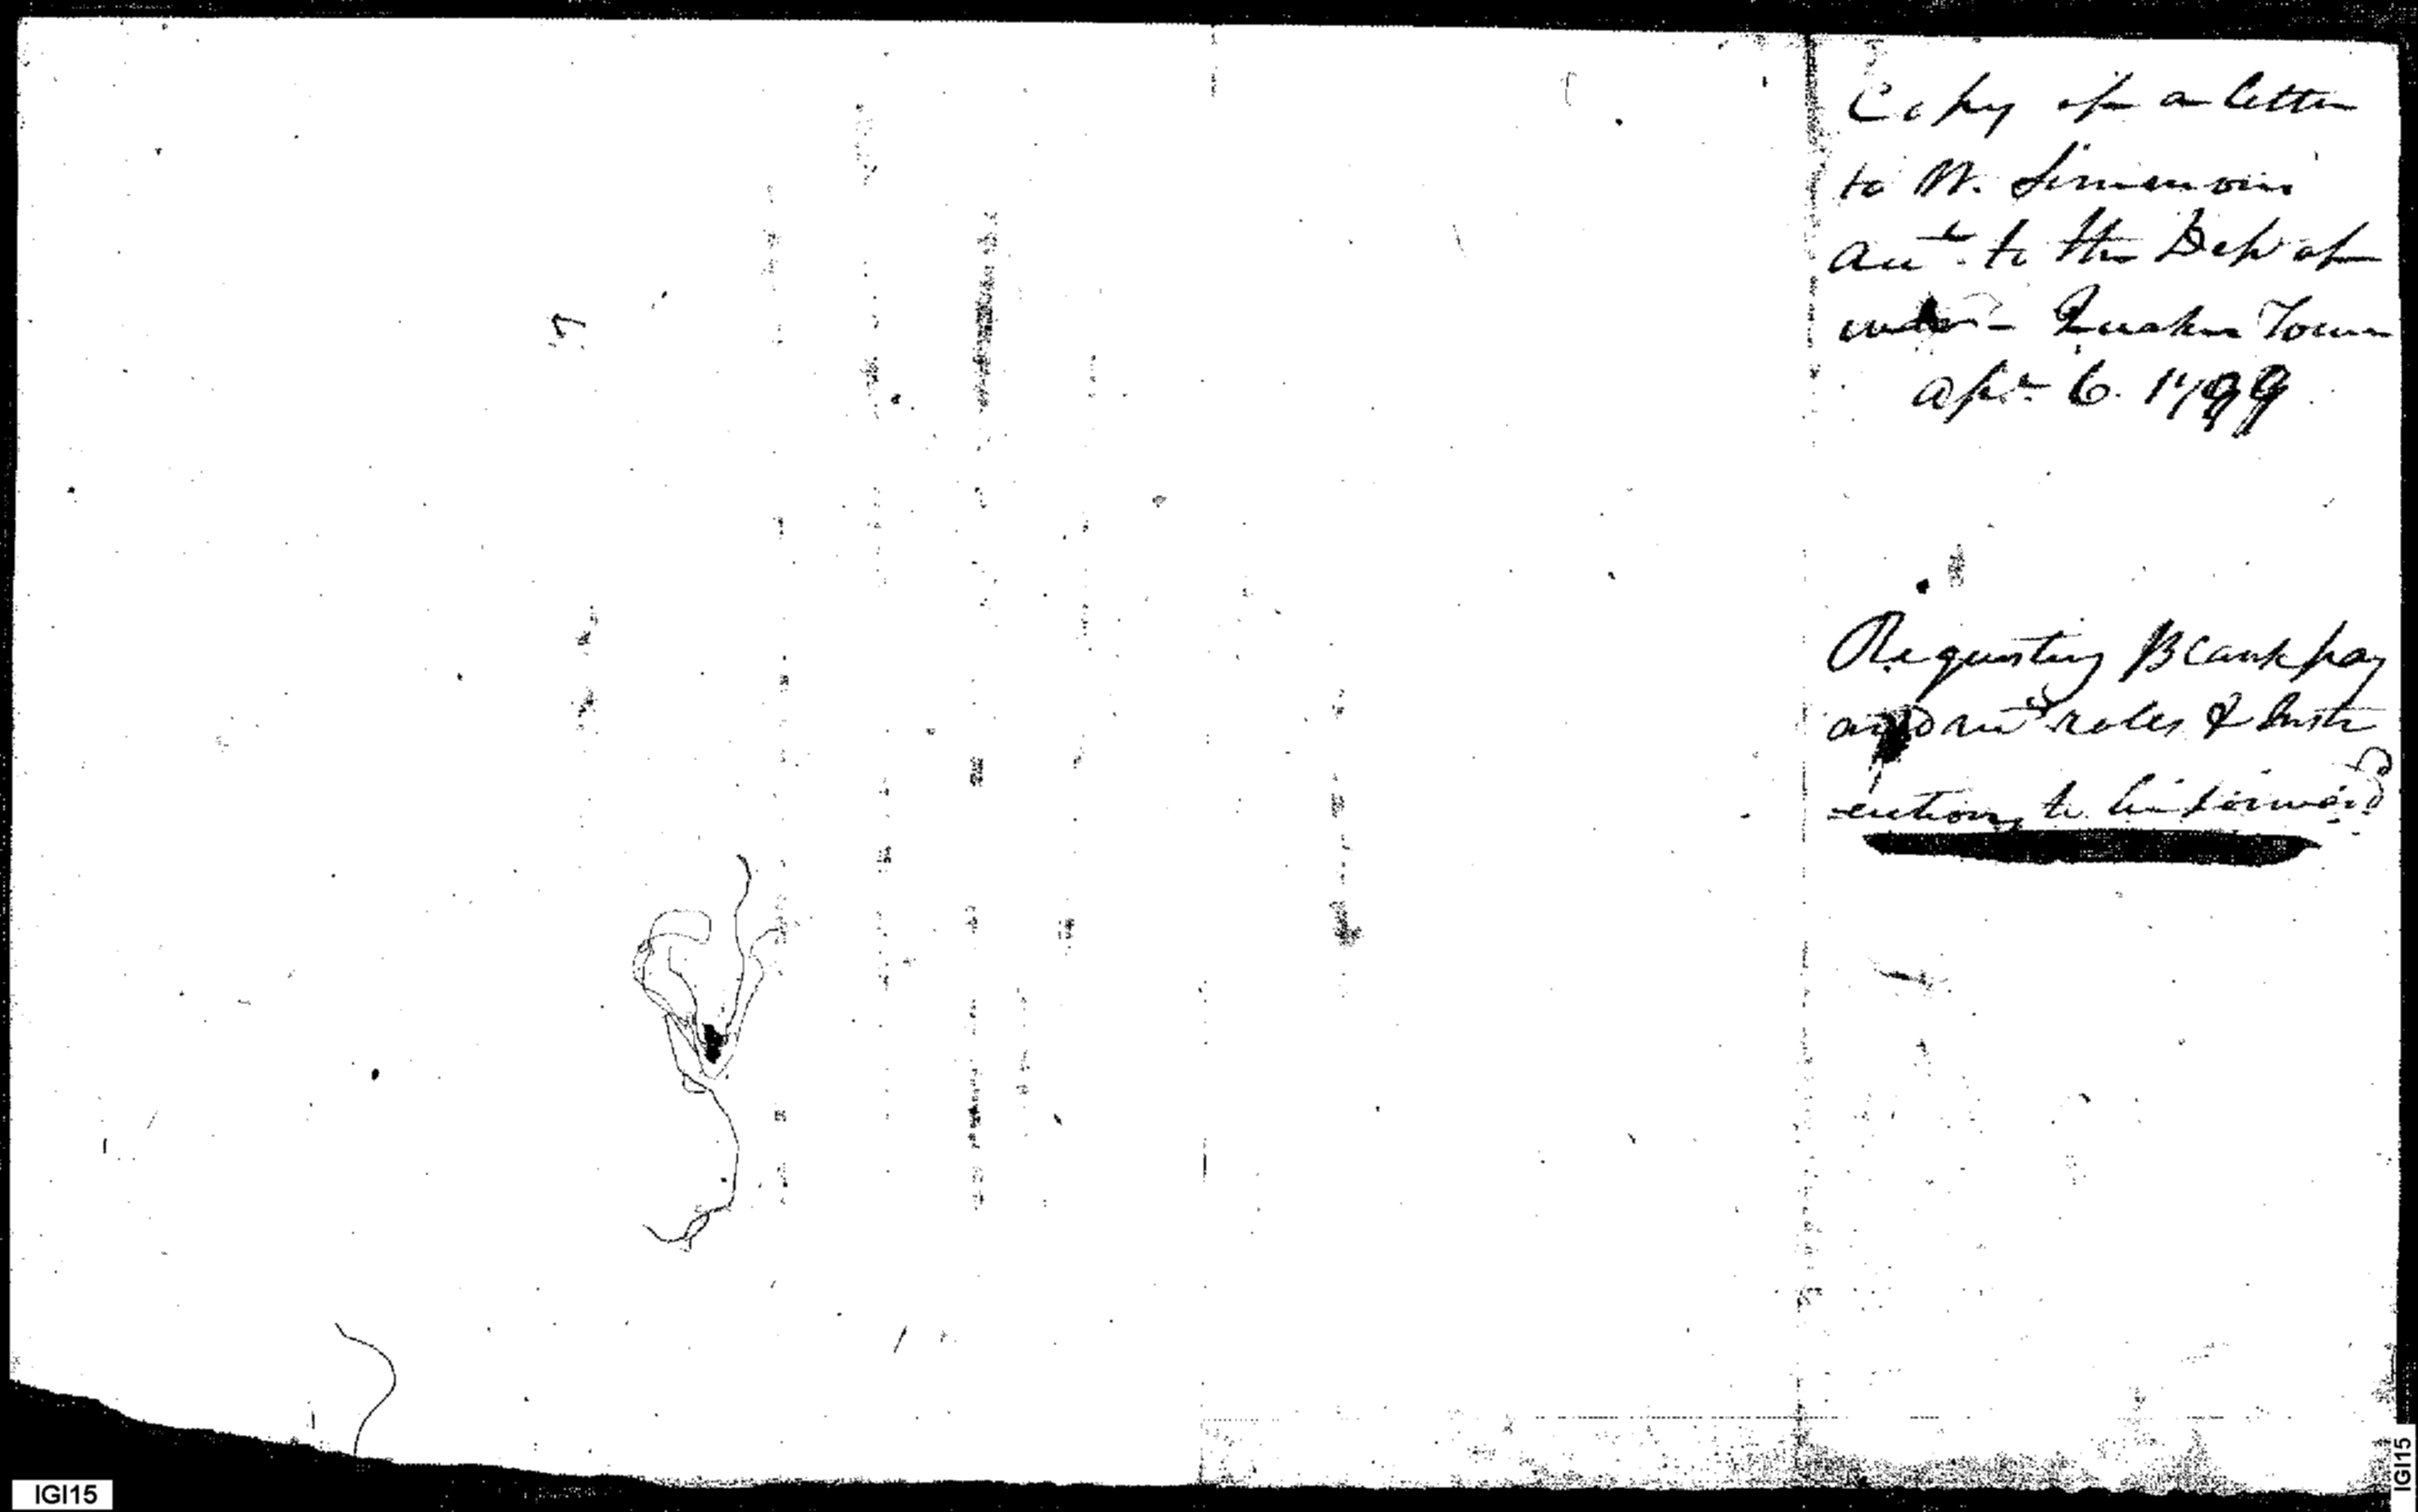 Copy of a letter
to W. Simmons
Acct to the Dep of
war - Quaker Town
Apr 6. 1799
Requesting Blank pay
and rolles & Instr
uctions to be forward
IGI15
IGI15